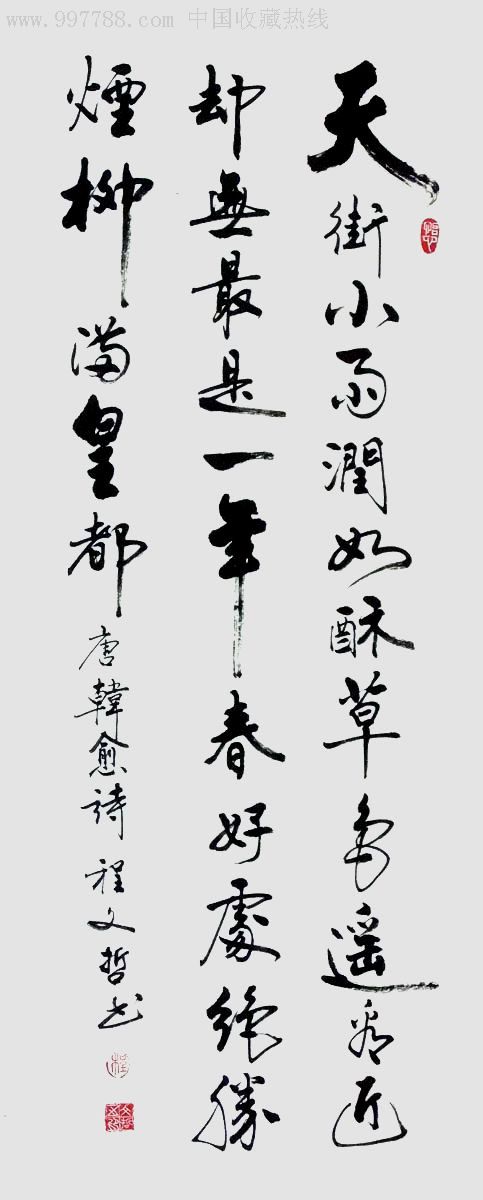 www.997788.com 中国收藏热线
天街小雨潤如酥草色遥看近
却無最是一年春好處絶勝
煙柳滿皇都
唐韓愈詩 程文哲书